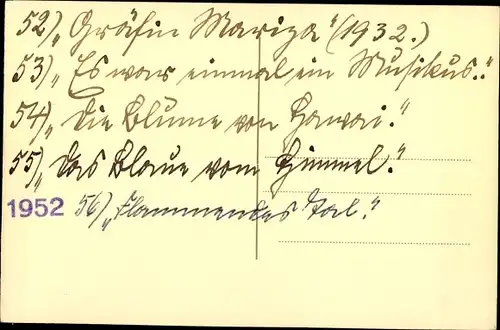 52) „Gräfin Mariza" (1932.)
53) „Es war einmal ein Musikus.."
54) „Die Blume von Hawai."
55) „Das Blaue vom Himmel."
1952 56) „Flammendes Tal."